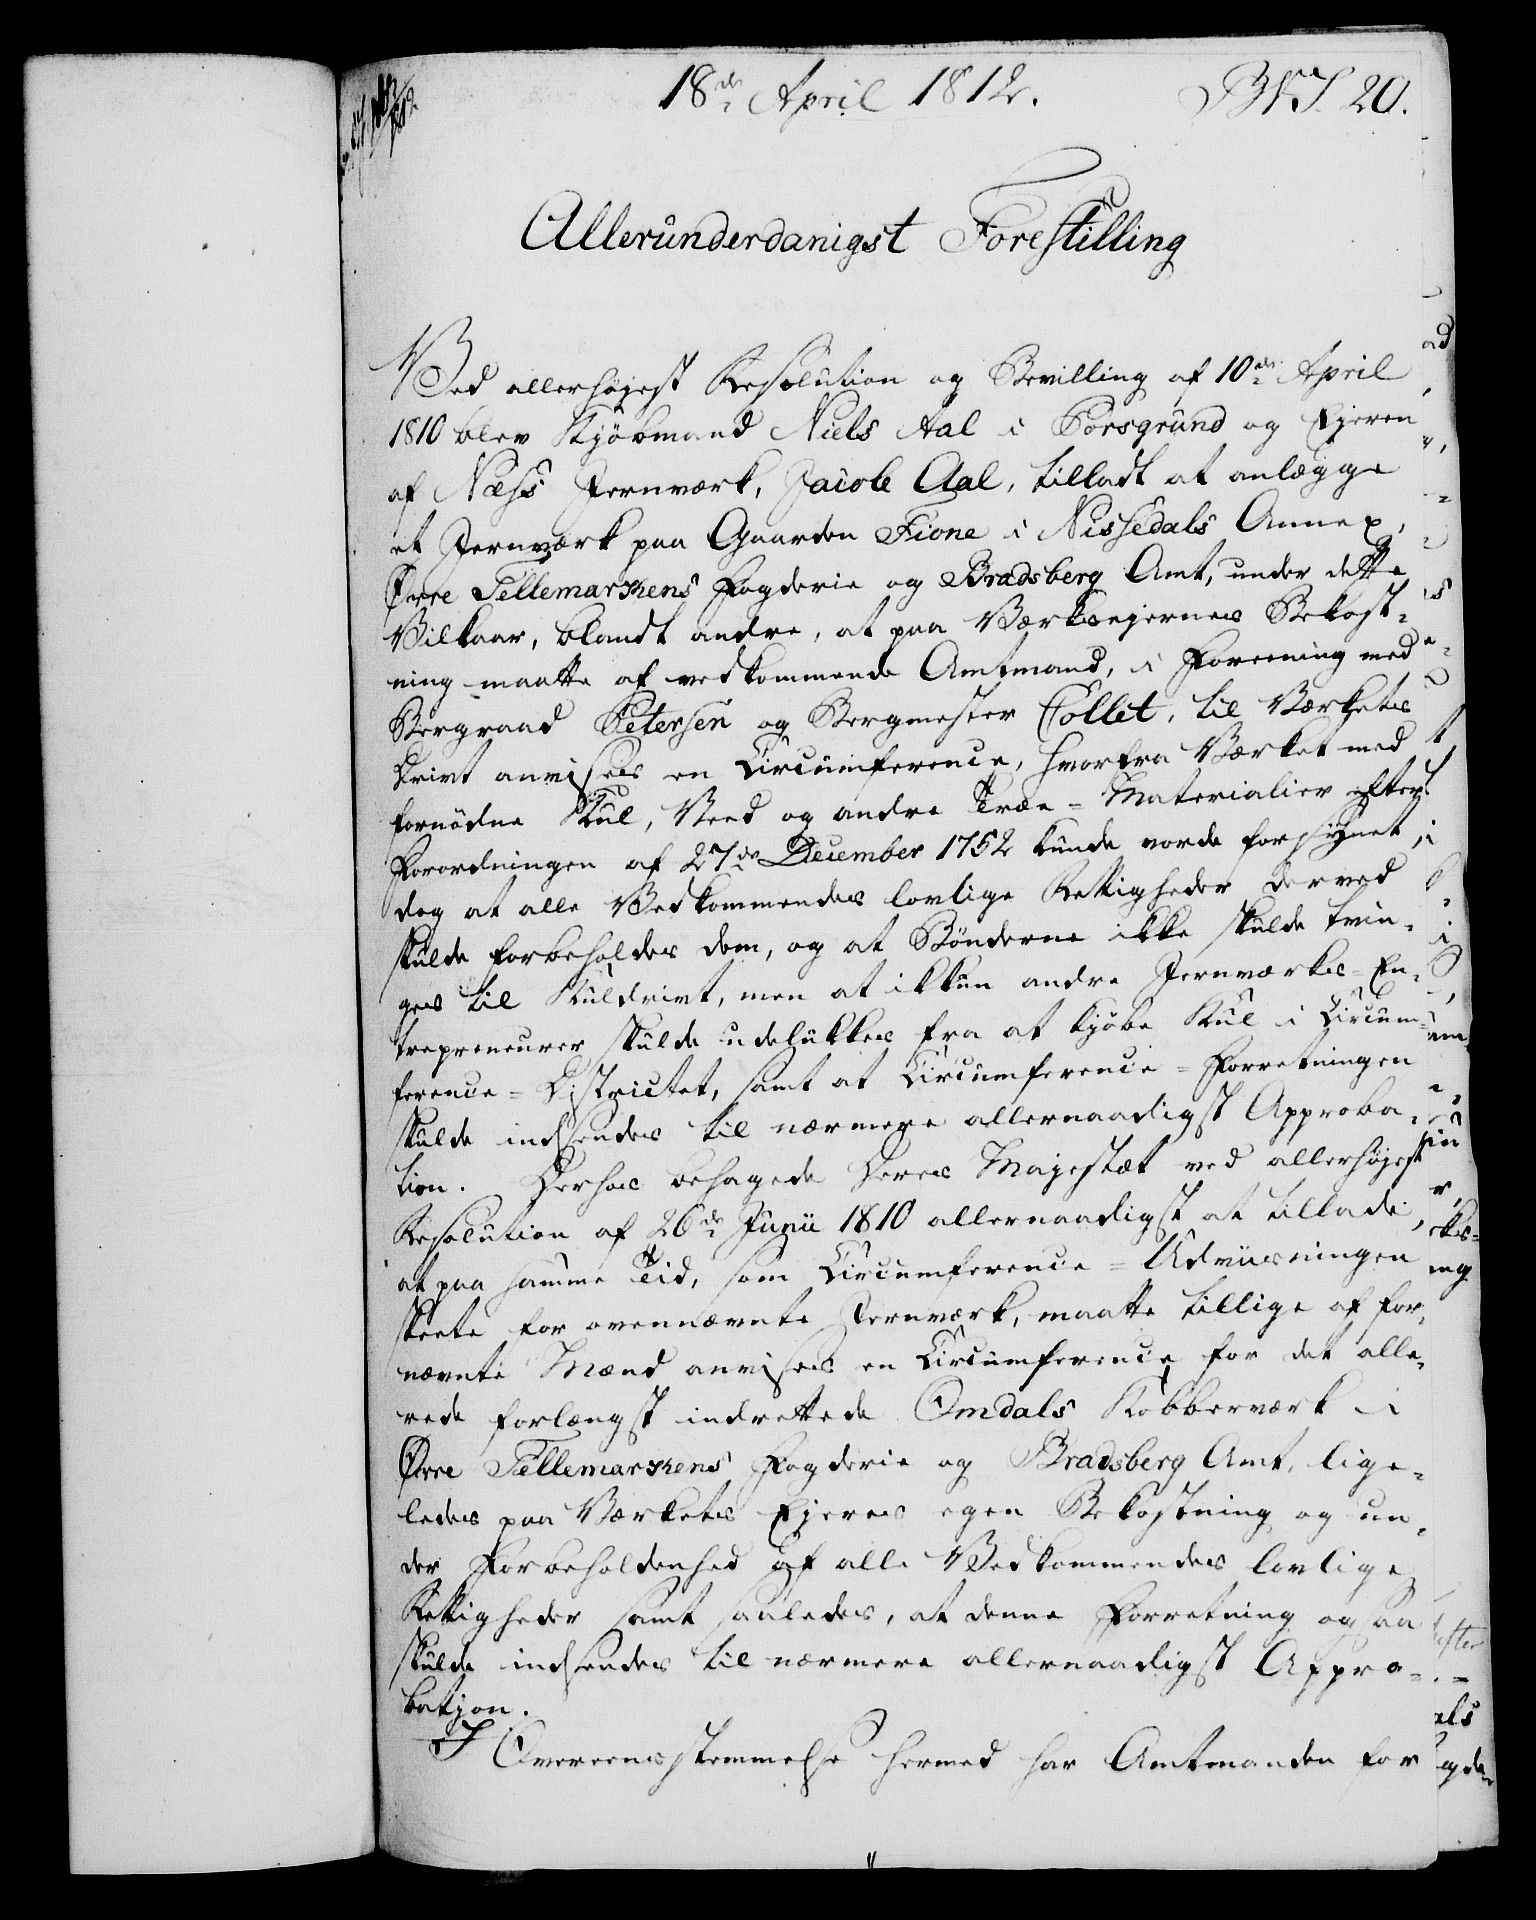 18de April 1812.
Allerunderdanigst Forestilling
Ved allerhøjest Resolution og Bevilling af 10de April
1810 blev Kjøbmand Niels Aal i Porsgrund og Ejeren
af Næss Jernværk, Jacob Aal, tilladt at anlægge
et Jernværk paa Gaarden Fione i Nissedals Annex,
Øvre Tellemarkens Fogderie og Bradsberg Amt, under dette
Vilkaar, blandt andre, at paa Værksejernes Bekost-
ning maatte af vedkommende Amtmand, i Foreening med
Bergraad Petersen og Bergmester Collet, til Værkets
Drivt anvises en Circumference, hvorfra Værket med
fornødne Kul, Veed og andre Træe-Materialier efter
Forordningen af 27de December 1752 kunde vorde forsÿnet,
dog at alle Vedkommendes lovlige Rettigheder derved
skulde forbeholdes dem, og at Bønderne ikke skulde tvin-
ges til Kuldrivt, men at ikkun andre Jernværks-En-
trepreneurer skulde udelukkes fra at kjøbe Kul i Circum-
ference-Districtet, samt at Circumference-Forretningen
skulde indsendes til nærmere allernaadigst Approba-
tion. Derhos behagede Deres Majestæt ved allerhøjest
Resolution af 26de Junii 1810 allernaadigst at tillade,
at paa samme Tid, som Circumference-Udviisningen
skeete for ovennævnte Jernværk, maatte tillige af for-
nævnte Mænd anvises en Circumference for det alle-
rede forlængst indrettede Omdals Kobberværk i
Øvre Tellemarkens Fogderie og Bradsberg Amt, lige-
ledes paa Værkets Ejeres egen Bekostning og un-
der Forbeholdenhed af alle Vedkommendes lovlige
Rettigheder samt saaledes, at denne Forretning ogsaa
skulde indsendes til nærmere allernaadigst Appro-
bation.
I Overeensstemmelse hermed har Amtmanden for